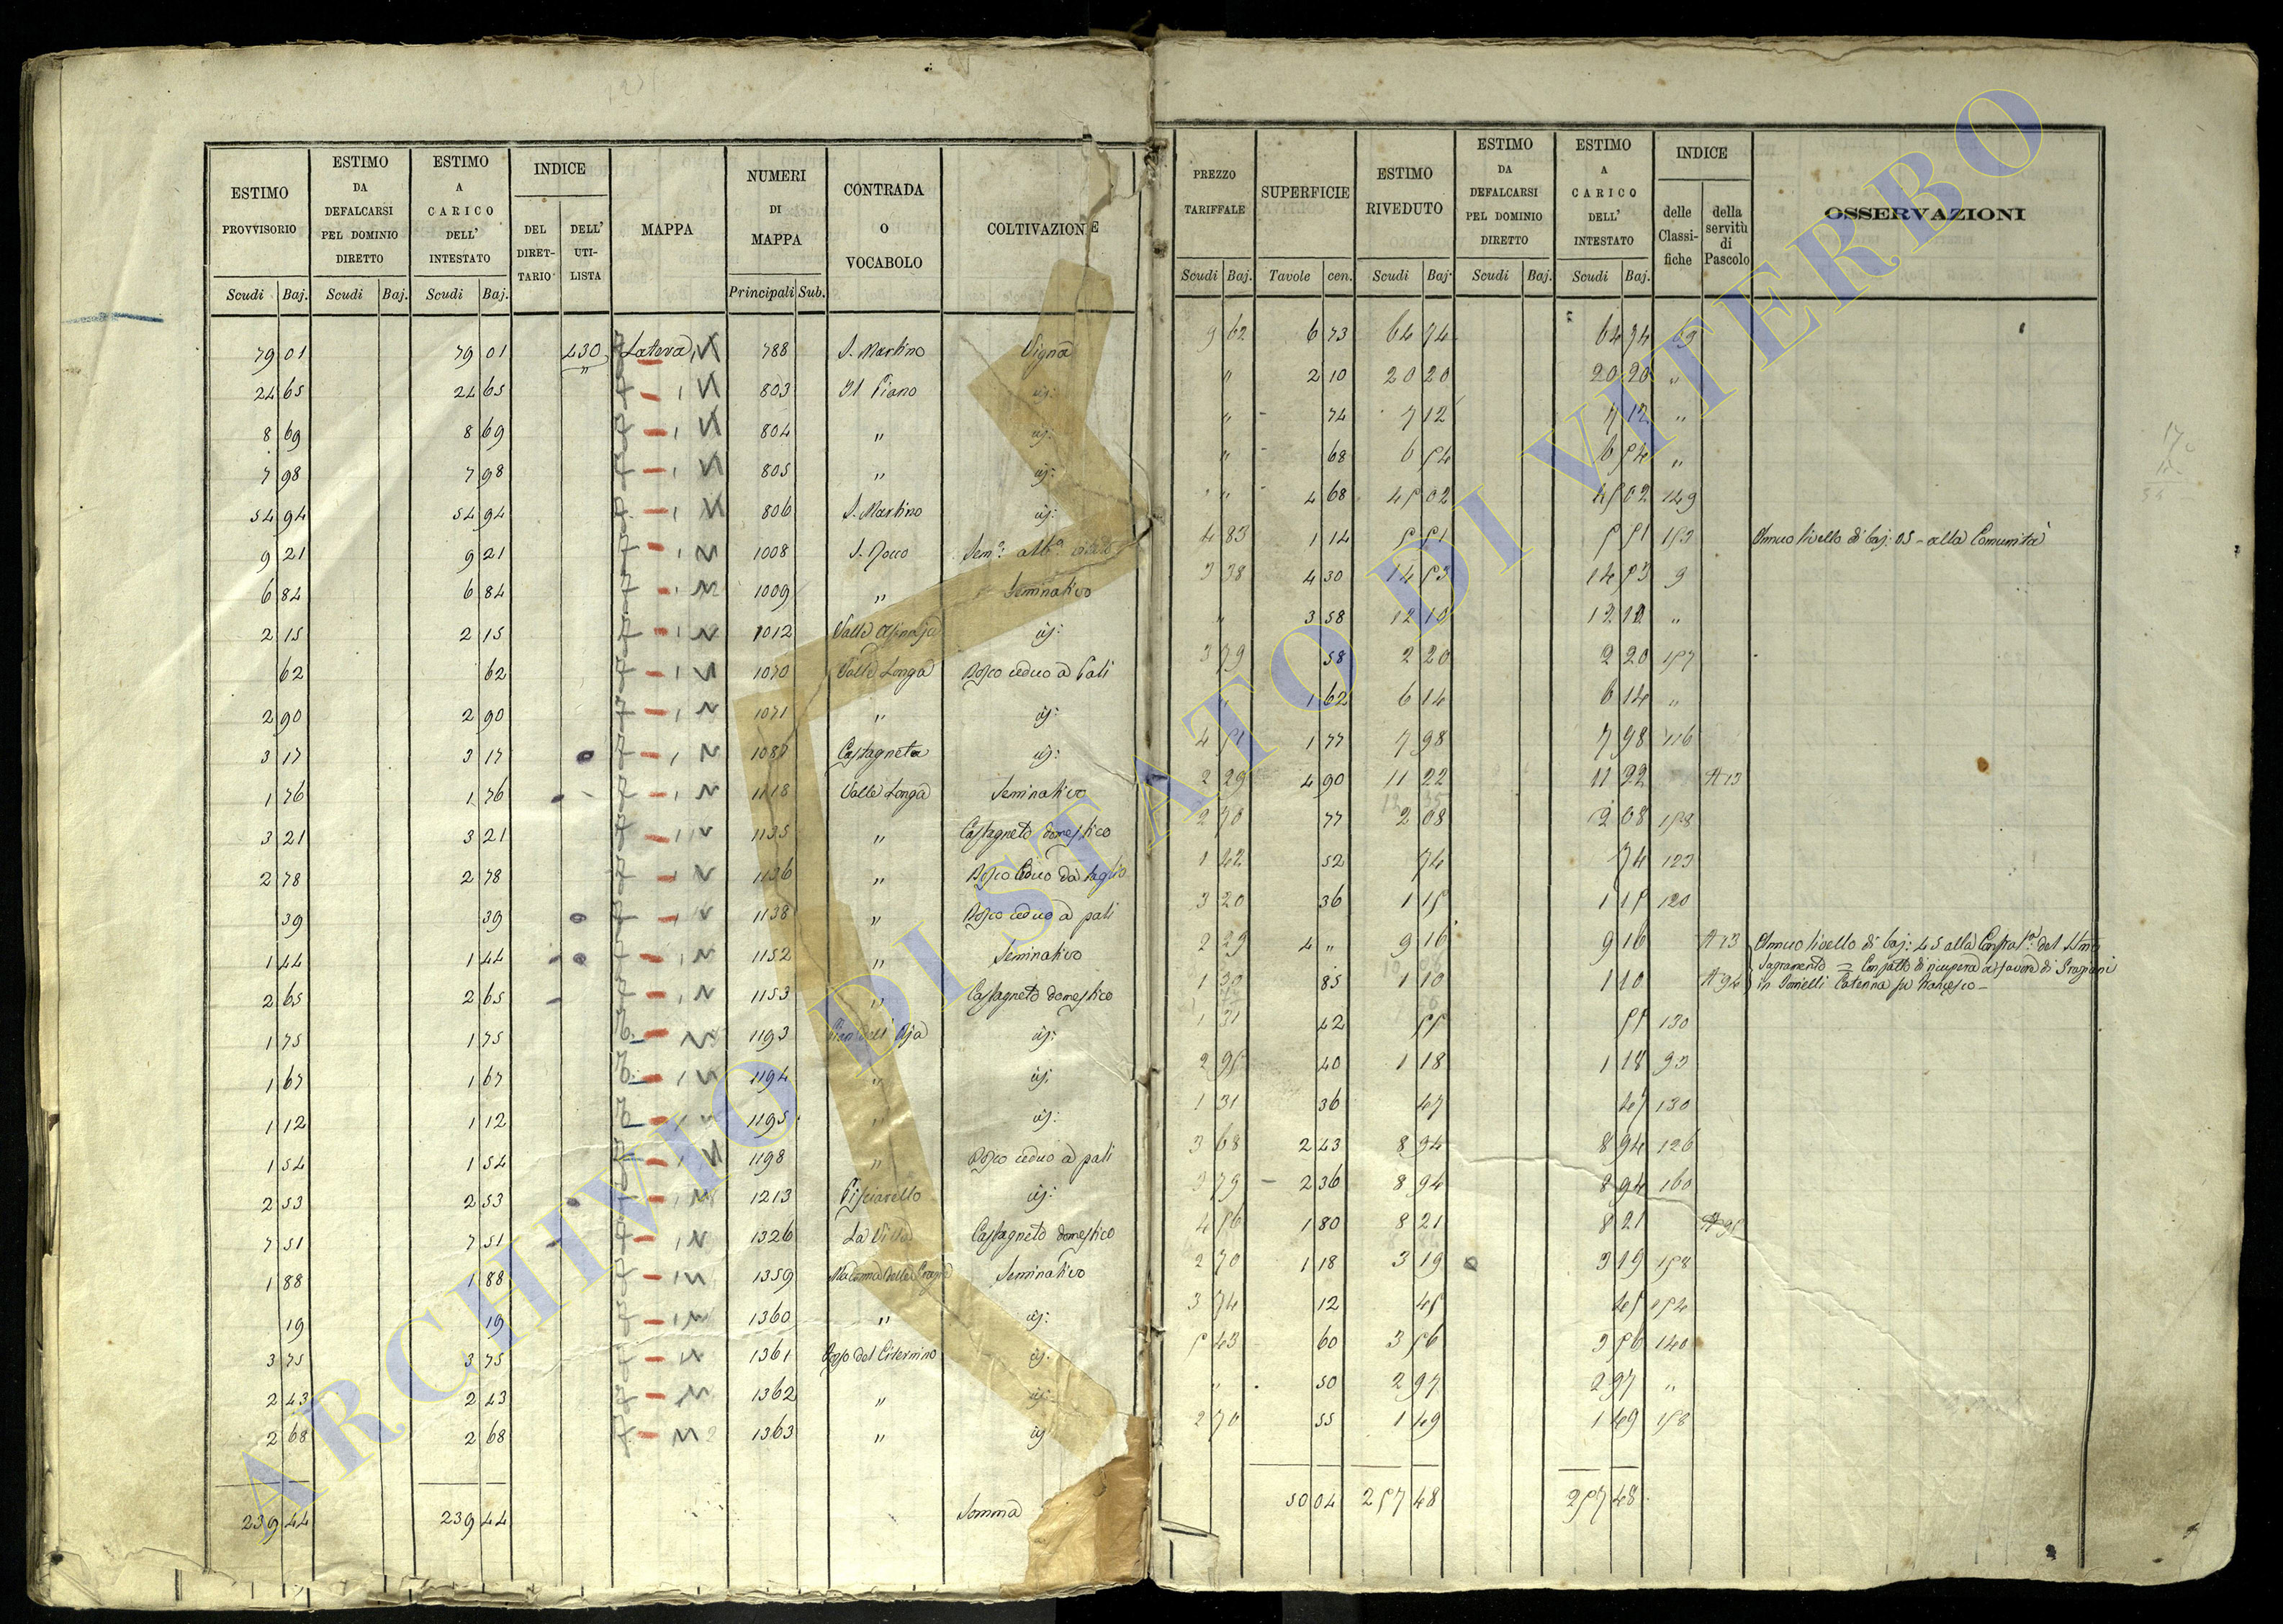 ESTIMO PROVVISORIO | ESTIMO DA DEFALCARSI PEL DOMINIO DIRETTO | ESTIMO A CARICO DELL' INTESTATO | INDICE | MAPPA | NUMERI DI MAPPA | CONTRADA O VOCABOLO | COLTIVAZIONE | PREZZO TARIFFALE | SUPERFICIE | ESTIMO RIVEDUTO | ESTIMO DA DEFALCARSI PEL DOMINIO DIRETTO | ESTIMO A CARICO DELL' INTESTATO | INDICE | OSSERVAZIONI
DEL DIRETTARIO | DELL' UTILISTA | delle Classifiche | della servitù di Pascolo
Scudi Baj. | Scudi Baj. | Scudi Baj. | Principali Sub. | Scudi Baj. | Tavole cen. | Scudi Baj. | Scudi Baj. | Scudi Baj.
79 01 | 79 01 | 430 | Latera | 788 | S. Martino | Vigna | 9 62 | 6 73 | 64 74 | 64 74 | 69
24 65 | 24 65 | 803 | Il Piano | id: | " | 2 10 | 20 20 | 20 20 | "
8 69 | 8 69 | 804 | " | id: | " | 74 | 7 12 | 7 12 | "
7 98 | 7 98 | 805 | " | id: | " | 68 | 6 54 | 6 54 | "
54 94 | 54 94 | 806 | S. Martino | id: | " | 4 68 | 45 02 | 45 02 | 149
9 21 | 9 21 | 1008 | S. Rocco | Sem.o alb.o vitato | 4 83 | 1 14 | 5 51 | 5 51 | 153 | Annuo livello di baj: 05 - alla Comunità
6 84 | 6 84 | 1009 | " | Seminativo | 3 38 | 4 30 | 14 53 | 14 53 | 9
2 15 | 2 15 | 1012 | Valle | id: | " | 3 58 | 12 10 | 12 10 | "
62 | 62 | 1070 | Valle Longa | Bosco ceduo a Pali | 3 79 | 58 | 2 20 | 2 20 | 157
2 90 | 2 90 | 1071 | " | id: | 1 62 | 6 14 | 6 14 | "
3 17 | 3 17 | 1087 | Castagneta | id: | 4 51 | 1 77 | 7 98 | 7 98 | 116
1 76 | 1 76 | 1118 | Valle Longa | Seminativo | 2 29 | 4 90 | 11 22 | 11 22 | A 13
3 21 | 3 21 | 1135 | " | Castagneto domestico | 2 70 | 77 | 2 08 | 2 08 | 158
2 78 | 2 78 | 1136 | " | Bosco Ceduo da taglio | 1 42 | 52 | 74 | 74 | 123
39 | 39 | 1138 | " | Bosco ceduo a pali | 3 20 | 36 | 1 15 | 1 15 | 120
1 44 | 1 44 | 1152 | " | Seminativo | 2 29 | 4 " | 9 16 | 9 16 | A 13 | Annuo livello di baj: 45 alla Confrat.a del SSmo
2 65 | 2 65 | 1153 | " | Castagneto domestico | 1 30 | 85 | 1 10 | 1 10 | A 94 | Sagramento = Con patto di ricupera a favore di
in Caterina fu Francesco -
1 75 | 1 75 | 1193 | Pian dell' Aja | id: | 1 31 | 42 | 55 | 55 | 130
1 67 | 1 67 | 1194 | " | id: | 2 95 | 40 | 1 18 | 1 18 | 93
1 12 | 1 12 | 1195 | " | id: | 1 31 | 36 | 47 | 47 | 130
1 54 | 1 54 | 1198 | " | Bosco ceduo a pali | 3 68 | 2 43 | 8 94 | 8 94 | 126
2 53 | 2 53 | 1213 | Pisciarello | id: | 3 79 | 2 36 | 8 94 | 8 94 | 160
7 51 | 7 51 | 1326 | La Villa | Castagneto domestico | 4 56 | 1 80 | 8 21 | 8 21 | A 95
1 88 | 1 88 | 1359 | Madonna della Grazia | Seminativo | 2 70 | 1 18 | 3 19 | 3 19 | 158
19 | 19 | 1360 | " | id: | 3 74 | 12 | 45 | 45 | 154
3 75 | 3 75 | 1361 | Poggio del Citernino | id: | 5 43 | 60 | 3 56 | 3 56 | 140
2 43 | 2 43 | 1362 | " | id: | " | 50 | 2 97 | 2 97 | "
2 68 | 2 68 | 1363 | " | id: | 2 70 | 55 | 1 49 | 1 49 | 158
239 44 | 239 44 | Somma | 50 04 | 257 48 | 257 48
ARCHIVIO DI STATO DI VITERBO